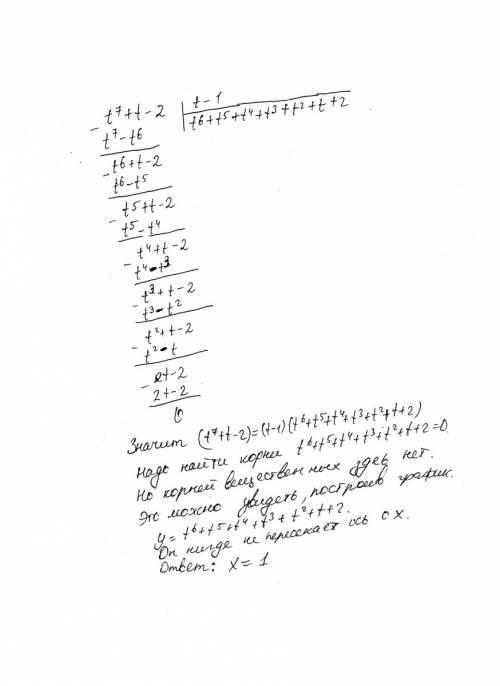 t⁷+t-2 | t-1
- t⁷-t⁶ | t⁶+t⁵+t⁴+t³+t²+t+2
t⁶+t-2
- t⁶-t⁵
t⁵+t-2
- t⁵-t⁴
t⁴+t-2
- t⁴-t³
t³+t-2
- t³-t²
t²+t-2
- t²-t
2t-2
- 2t-2
0
Значит (t⁷+t-2)=(t-1)(t⁶+t⁵+t⁴+t³+t²+t+2)
Надо найти корни t⁶+t⁵+t⁴+t³+t²+t+2=0
Но корней вещественных здесь нет.
Это можно увидеть, построив график.
y=t⁶+t⁵+t⁴+t³+t²+t+2.
Он нигде не пересекает ось ox.
Ответ: x=1